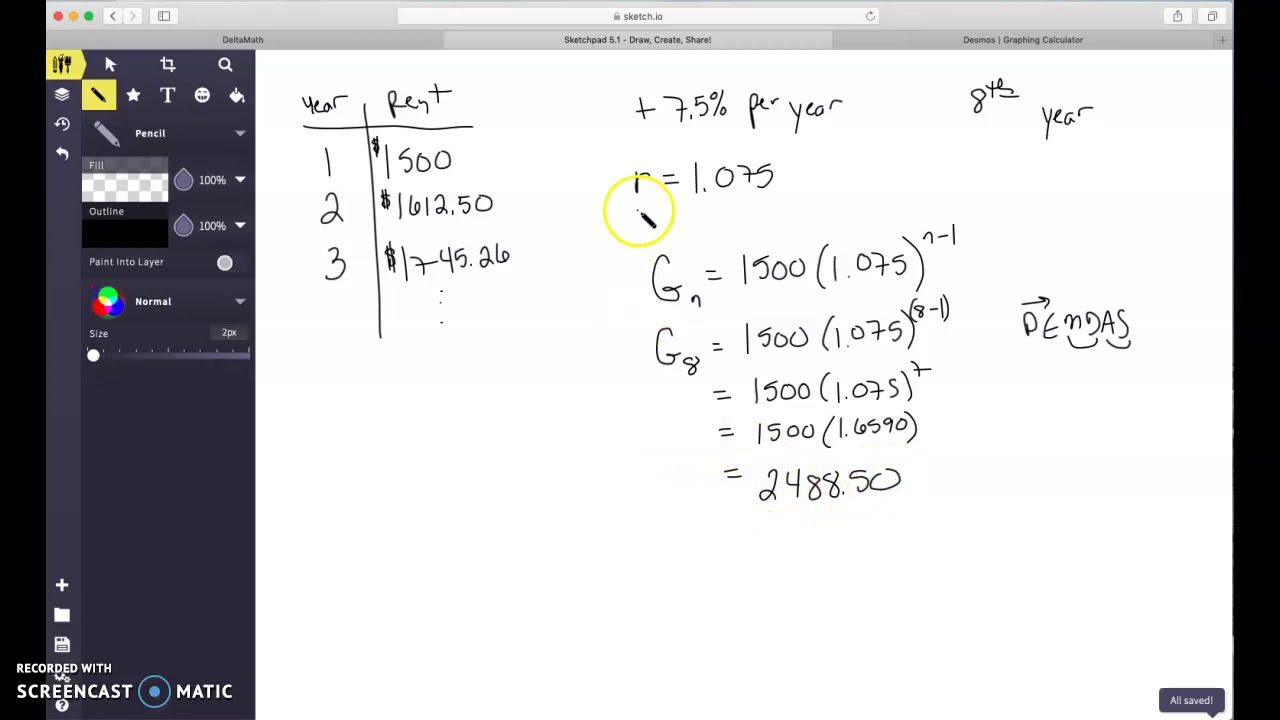 sketch.io
DeltaMath
Sketchpad 5.1 - Draw, Create, Share!
Desmos | Graphing Calculator
Pencil
Fill
100%
Outline
100%
Paint Into Layer
Normal
Size
2px
year Rent
1 $1500
2 $1612.50
3 $1745.26
+ 7.5% per year
8th year
r = 1.075
Gn = 1500(1.075)^n-1
G8 = 1500(1.075)^(8-1)
= 1500(1.075)^7
= 1500(1.6590)
= 2488.50
PEMDAS
RECORDED WITH
SCREENCAST MATIC
All saved!